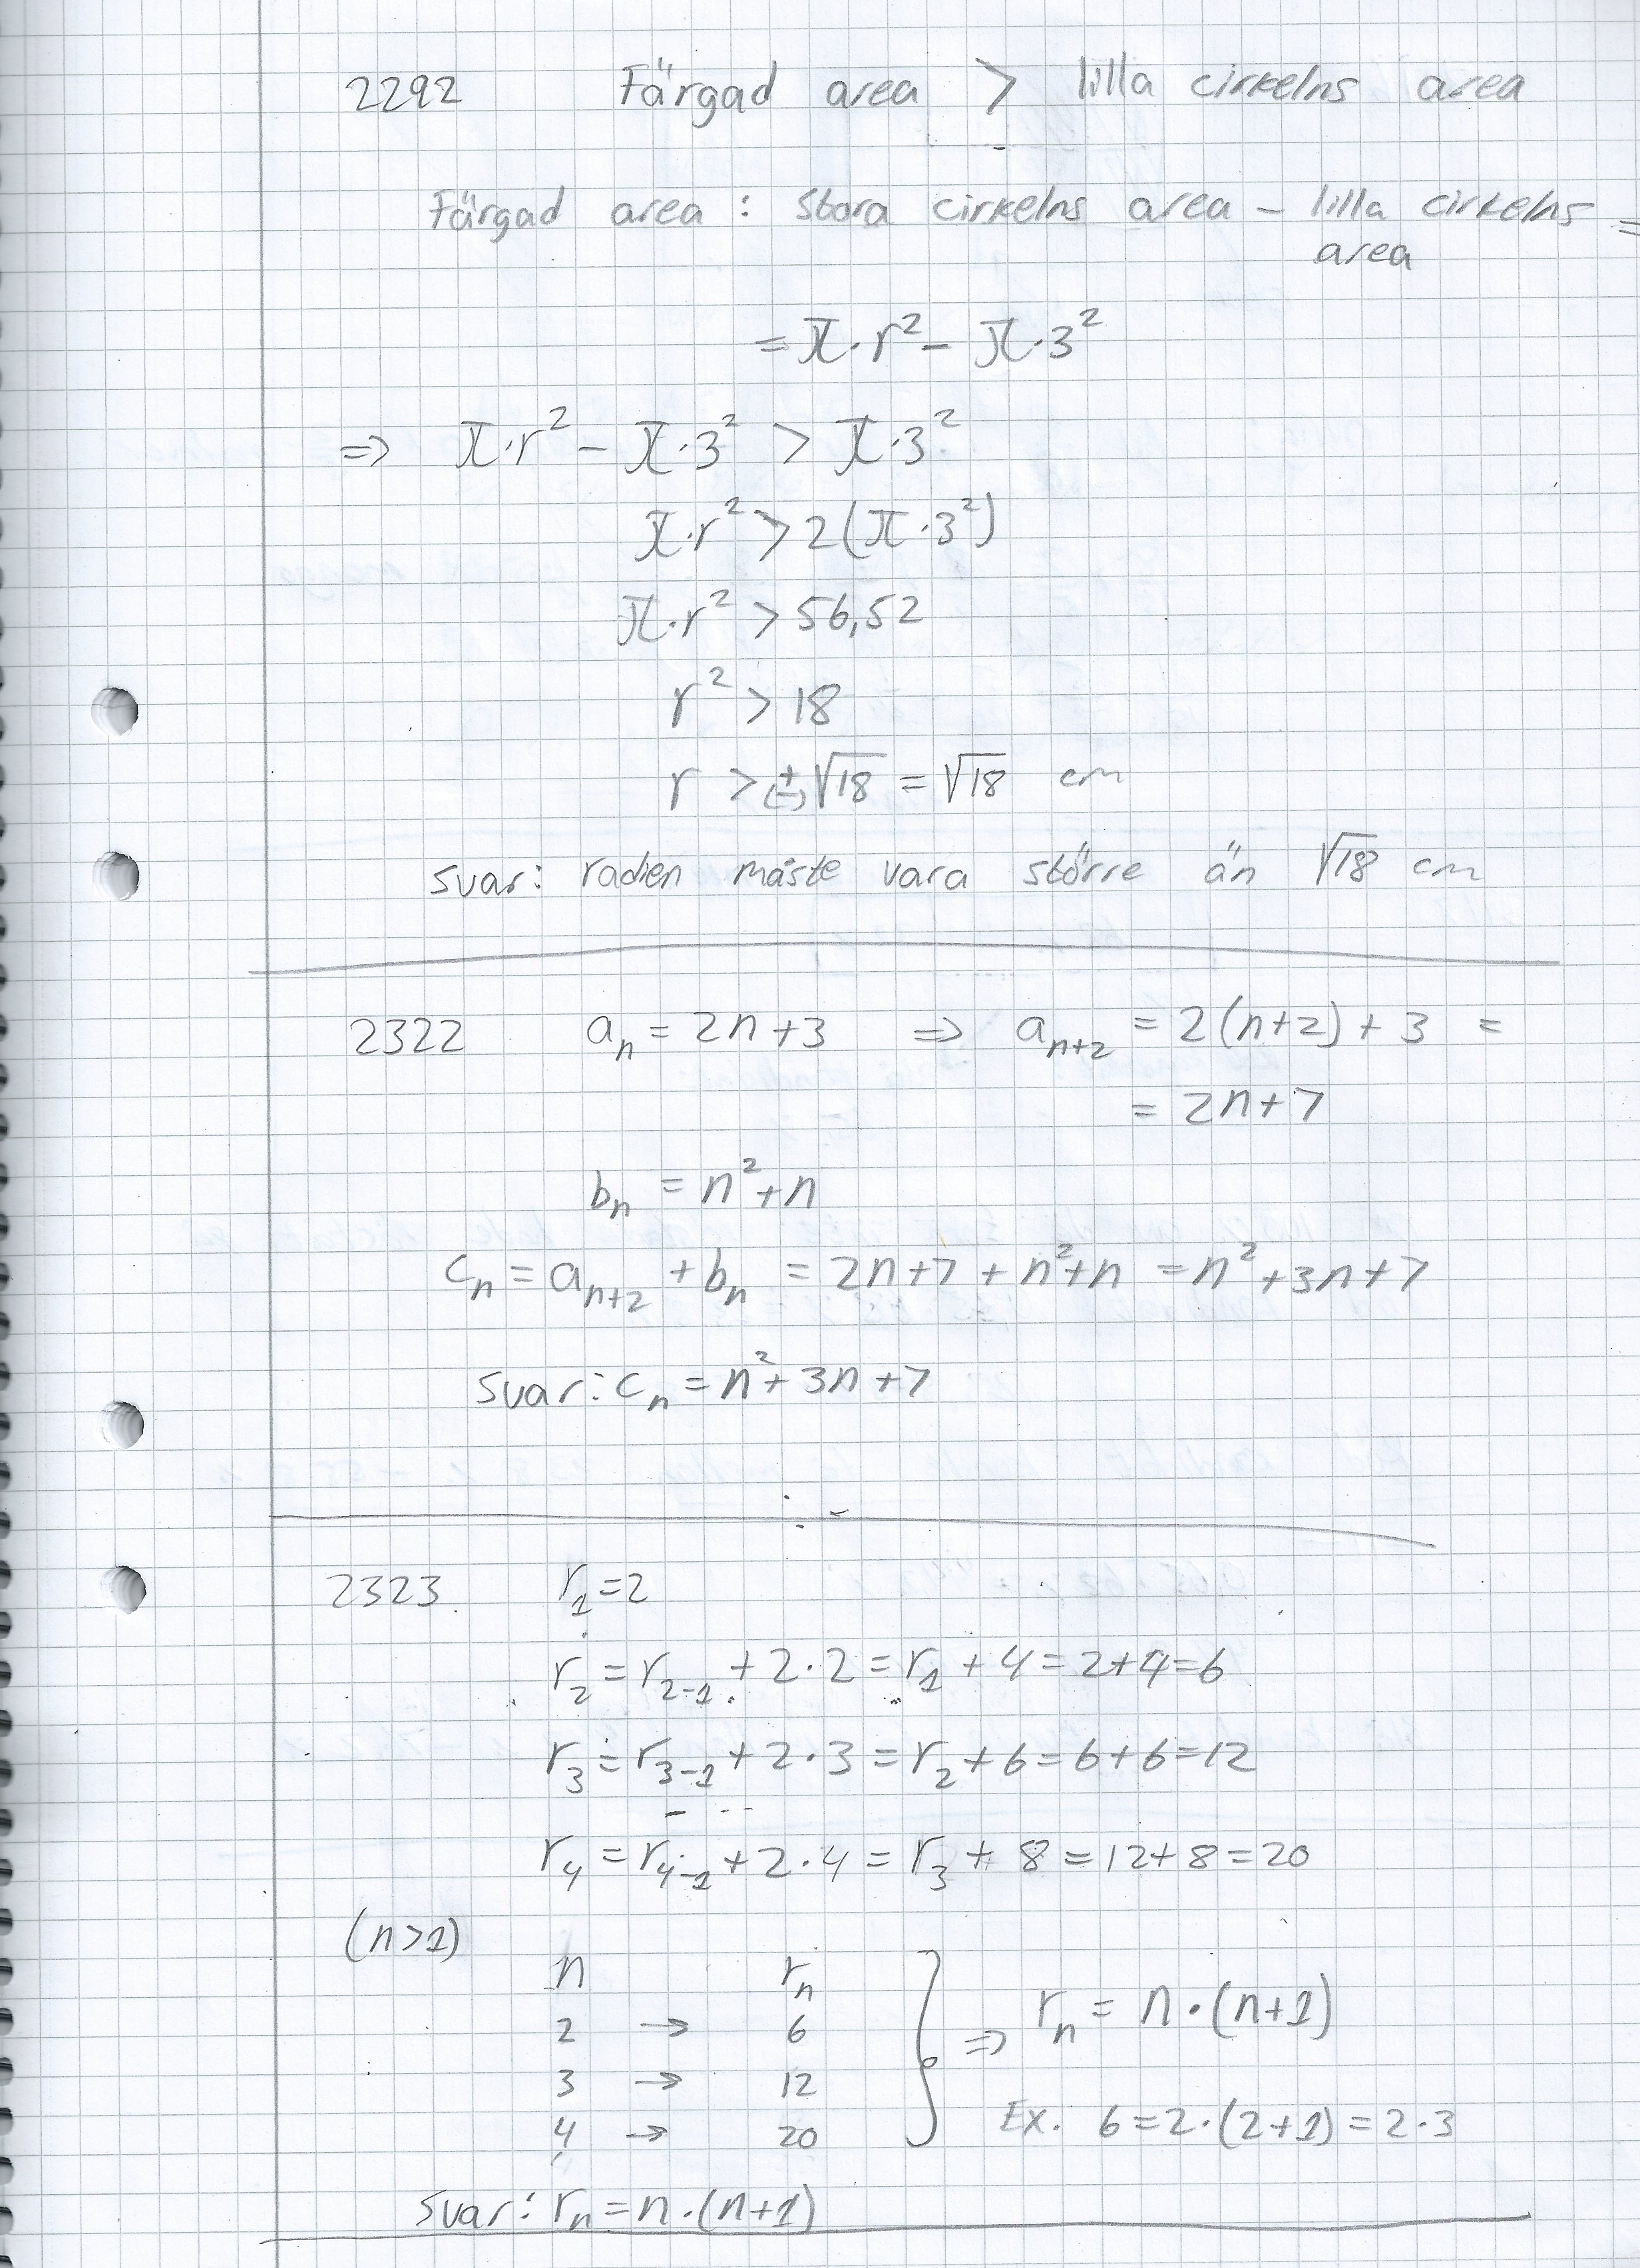 2292 Färgad area > lilla cirkelns area
Färgad area : Stora cirkelns area - lilla cirkelns =
area
= π·r² - π·3²
=> π·r² - π·3² > π·3²
π·r² > 2(π·3²)
π·r² > 56,52
r² > 18
r > (±)√18 = √18 cm
svar: radien måste vara större än √18 cm
2322 aₙ = 2n+3 => aₙ₊₂ = 2(n+2) + 3 =
= 2n+7
bₙ = n²+n
cₙ = aₙ₊₂ + bₙ = 2n+7 + n²+n = n²+3n+7
svar: cₙ = n²+3n+7
2323 r₁=2
r₂ = r₂₋₁ + 2·2 = r₁ + 4 = 2+4=6
r₃ = r₃₋₁ + 2·3 = r₂ + 6 = 6+6=12
r₄ = r₄₋₁ + 2·4 = r₃ + 8 = 12+8=20
(n>1)
n rₙ
2 → 6
3 → 12
4 → 20
=> rₙ = n·(n+1)
Ex. 6=2·(2+1)=2·3
svar: rₙ=n·(n+1)